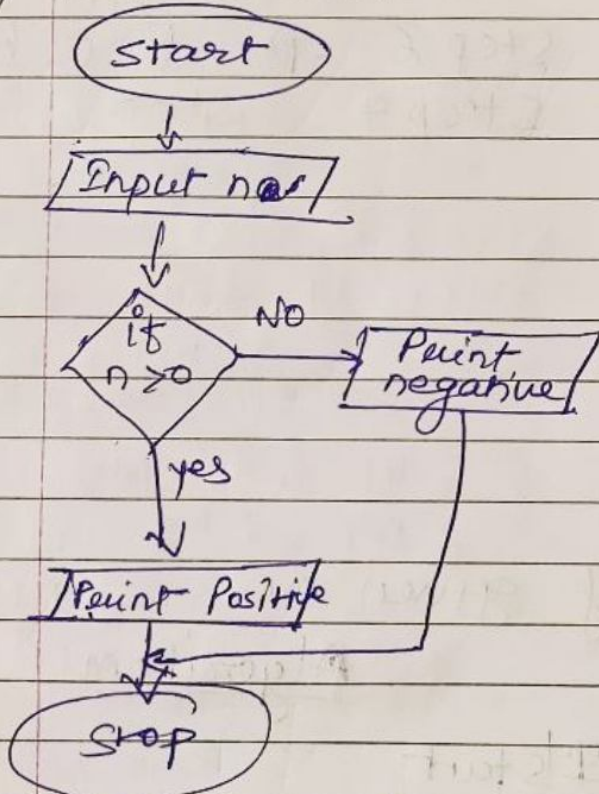 Start
Input no
if
n>0
NO
Print
negative
yes
Print Positive
Stop